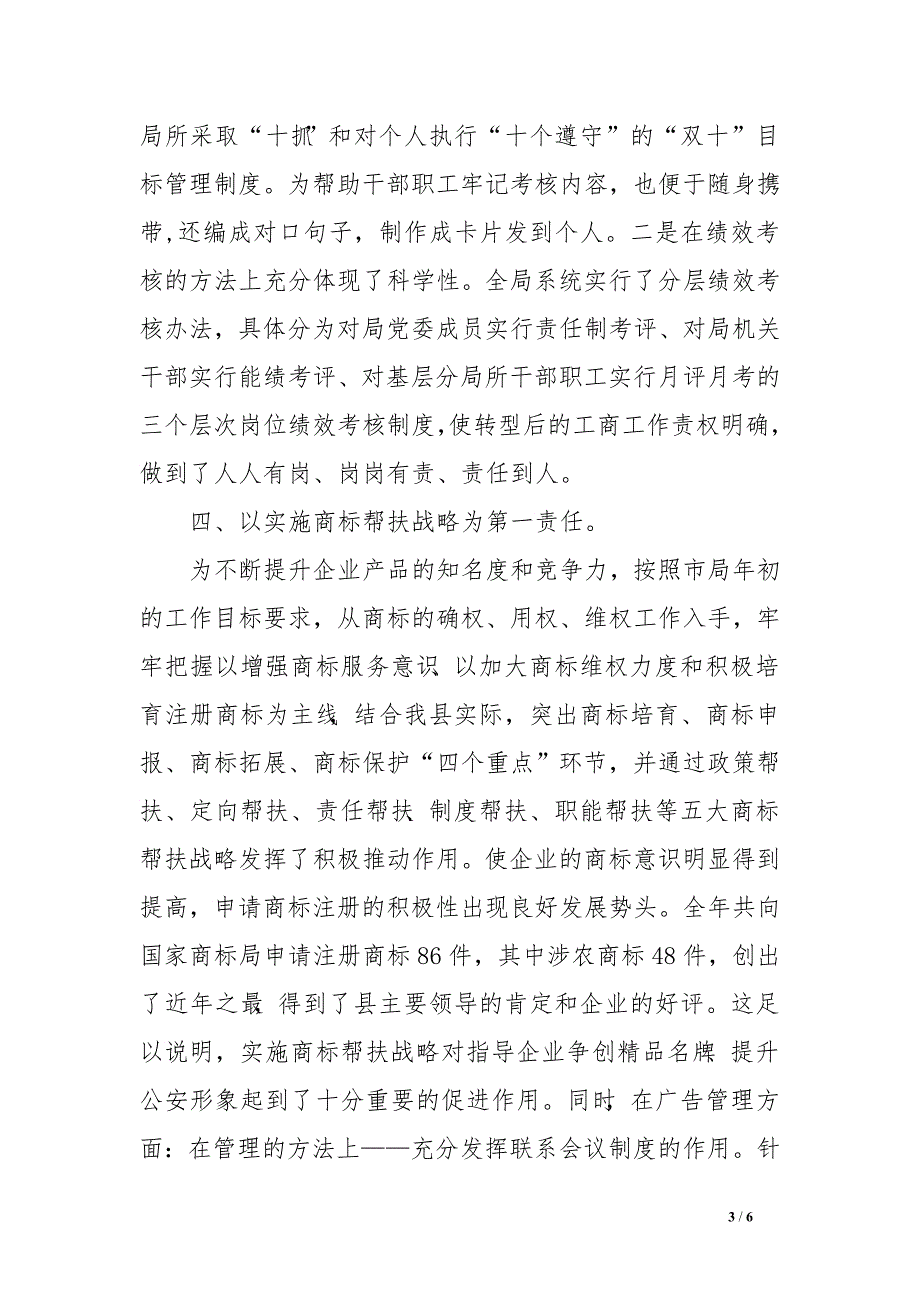 局所采取“十抓”和对个人执行“十个遵守”的“双十”目
标管理制度。为帮助干部职工牢记考核内容，也便于随身携
带,还编成对口句子，制作成卡片发到个人。二是在绩效考
核的方法上充分体现了科学性。全局系统实行了分层绩效考
核办法，具体分为对局党委成员实行责任制考评、对局机关
干部实行能绩考评、对基层分局所干部职工实行月评月考的
三个层次岗位绩效考核制度，使转型后的工商工作责权明确，
做到了人人有岗、岗岗有责、责任到人。
四、以实施商标帮扶战略为第一责任。
为不断提升企业产品的知名度和竞争力，按照市局年初
的工作目标要求，从商标的确权、用权、维权工作入手，牢
牢把握以增强商标服务意识、以加大商标维权力度和积极培
育注册商标为主线，结合我县实际，突出商标培育、商标申
报、商标拓展、商标保护“四个重点”环节，并通过政策帮
扶、定向帮扶、责任帮扶、制度帮扶、职能帮扶等五大商标
帮扶战略发挥了积极推动作用。使企业的商标意识明显得到
提高，申请商标注册的积极性出现良好发展势头。全年共向
国家商标局申请注册商标 86 件，其中涉农商标 48 件，创出
了近年之最，得到了县主要领导的肯定和企业的好评。这足
以说明，实施商标帮扶战略对指导企业争创精品名牌、提升
公安形象起到了十分重要的促进作用。同时，在广告管理方
面：在管理的方法上——充分发挥联系会议制度的作用。针
3 / 6